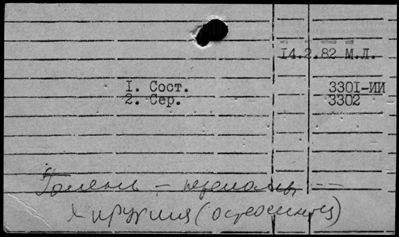 14.2.82 М.Л.
1. Сост. 3301-ИИ
2. Сер. 3302
Голень – перелом
Хирургия (остеосинтез)